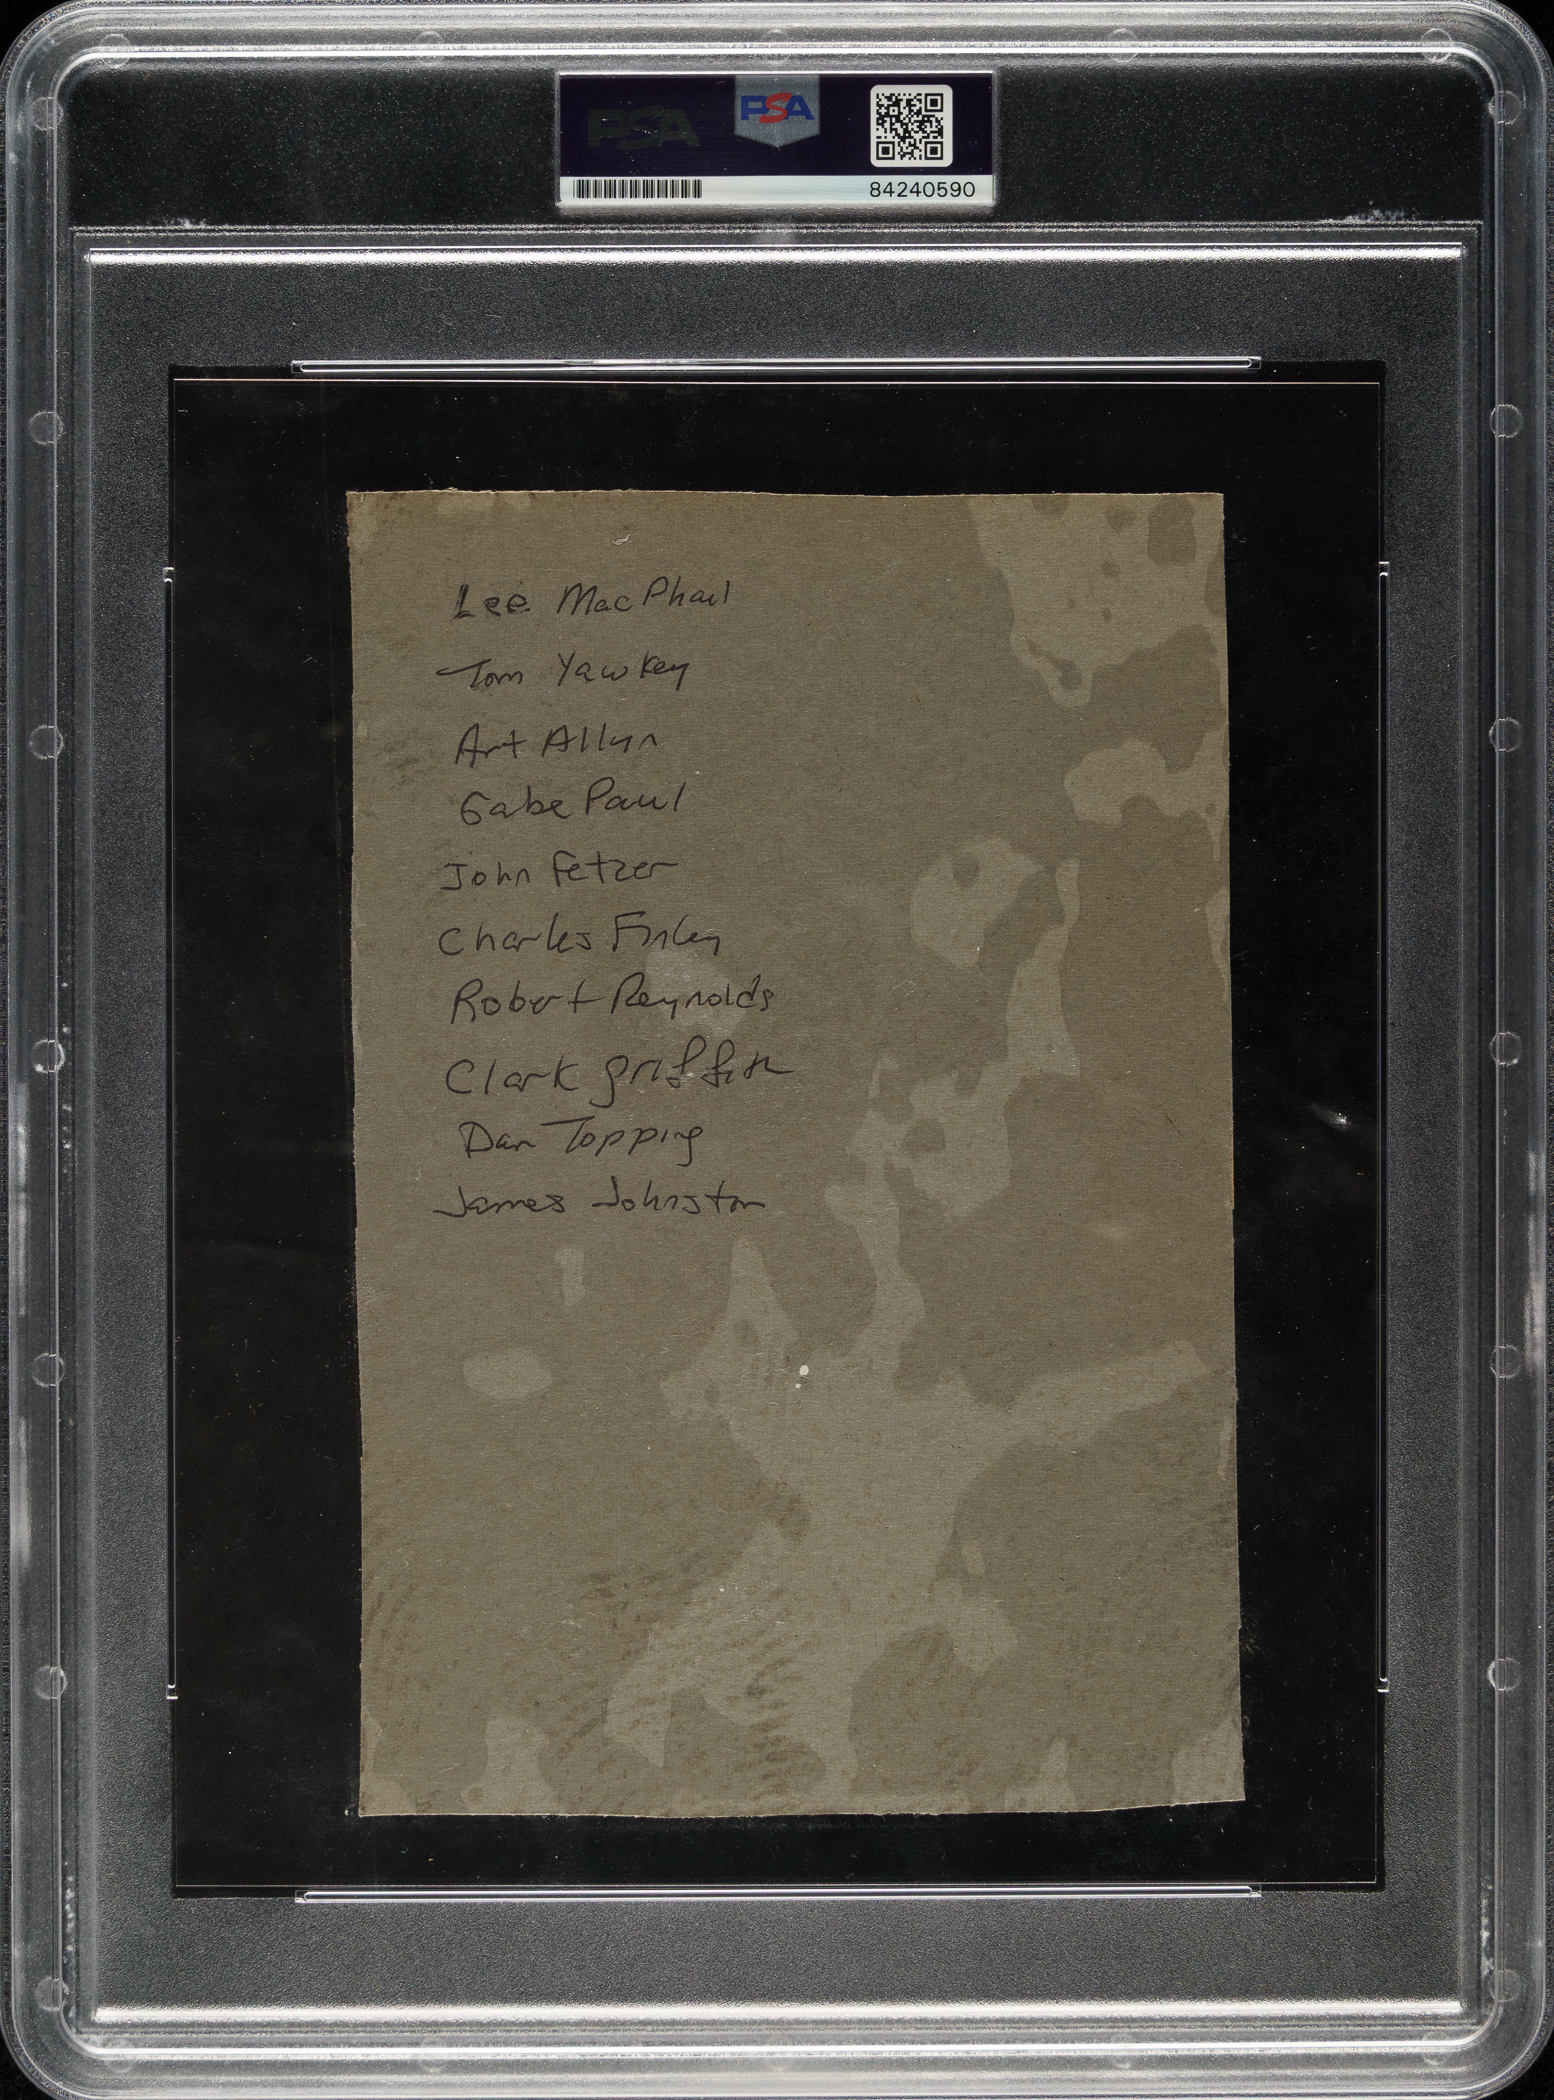 PSA
PSA
84240590
Lee MacPhail
Tom Yawkey
Art Allyn
Gabe Paul
John Fetzer
Charles Finley
Robert Reynolds
Clark Griffith
Dan Topping
James Johnston